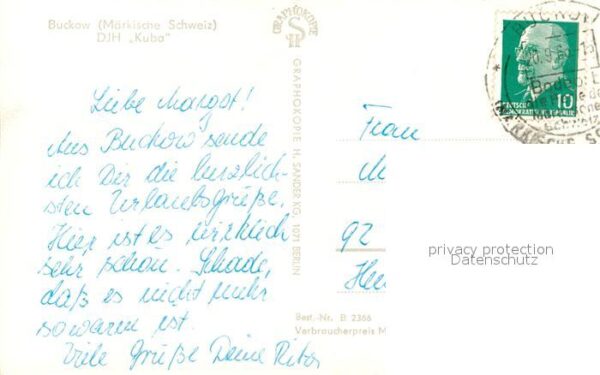 Buckow (Märkische Schweiz)
DJH „Kuba"
GRAPHOKOPIE
GRAPHOKOPIE H. SANDER KG, 1071 BERLIN
Liebe Margot!
Aus Buckow sende
ich Dir die herzlich-
sten Urlaubsgrüße.
Hier ist es wirklich
sehr schön. Schade,
daß es nicht mehr
so warm ist.
Viele Grüße Deine Rita
Best.-Nr. B 2366
Verbraucherpreis M
BUCKOW
DEUTSCHE
DEMOKRATISCHE REPUBLIK
10
MÄRKISCHE
Frau
M
92
privacy protection
Datenschutz